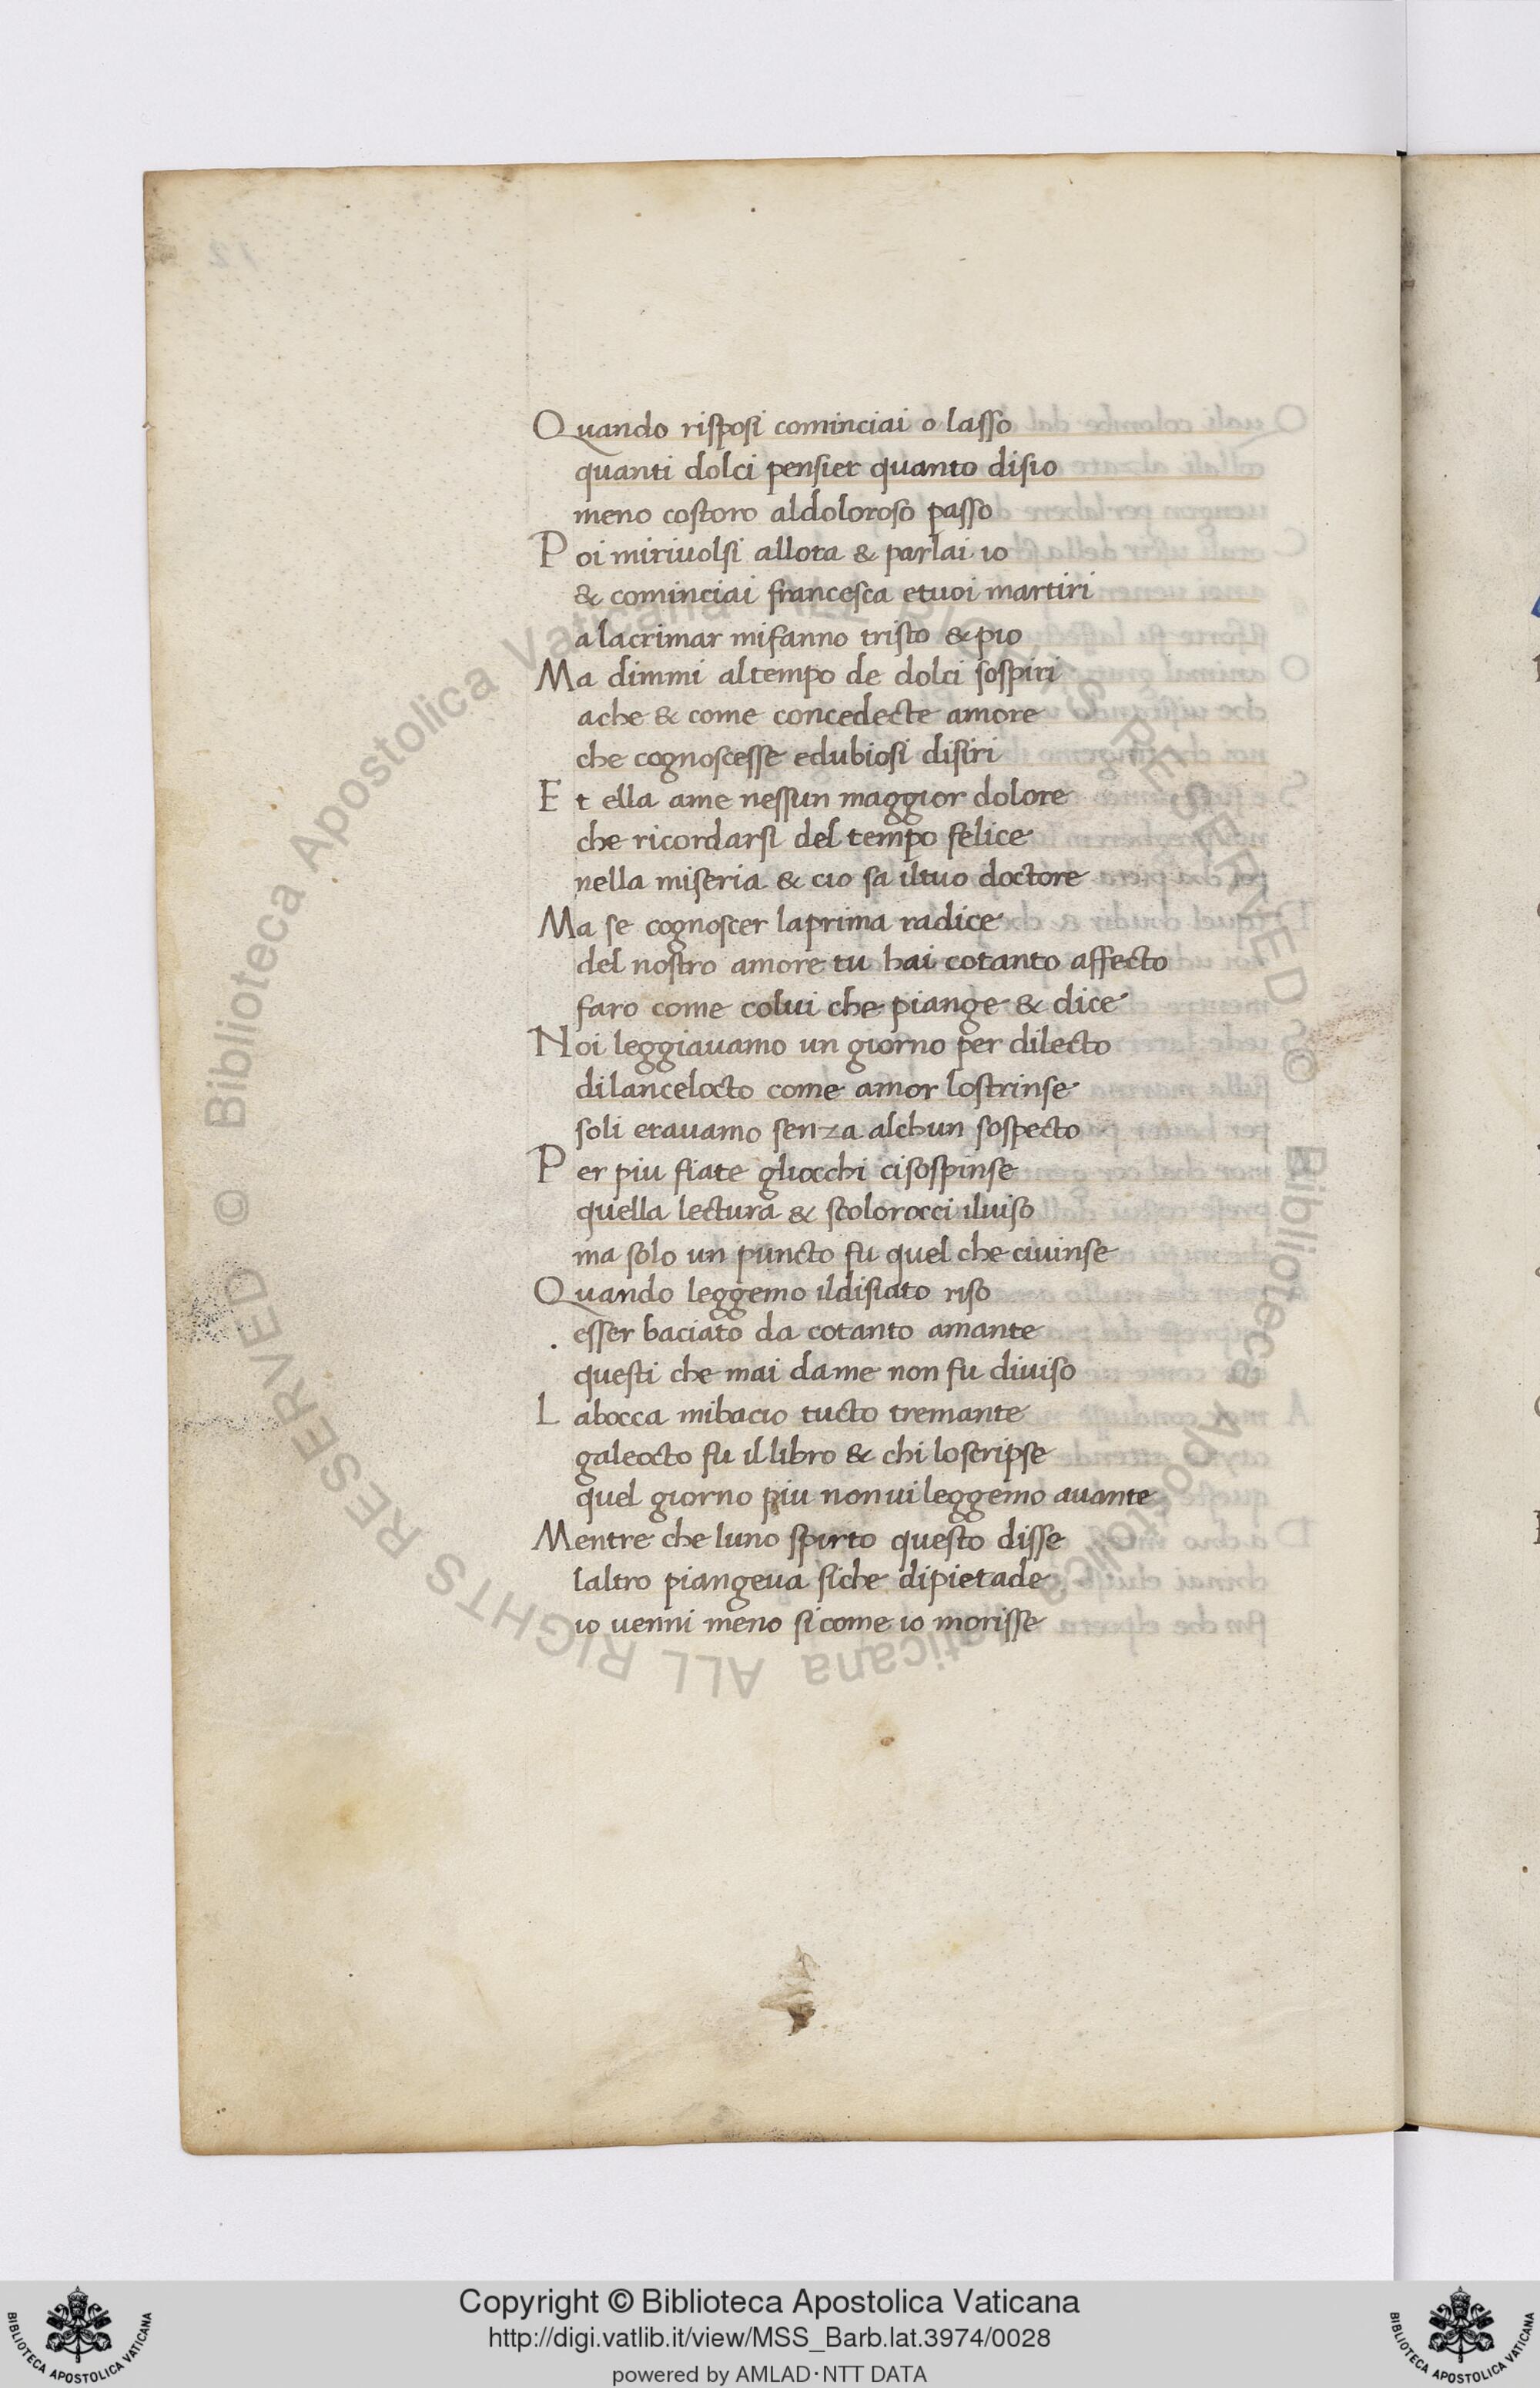 Quando risposi cominciai o lasso
quanti dolci pensier quanto disio
meno costoro aldoloroso passo
Poi mirivolsi allora & parlai io
& cominciai francesca etuoi martiri
a lacrimar mifanno tristo & pio
Ma dimmi altempo de dolci sospiri
ache & come concedecte amore
che cognoscesse edubiosi disiri
Et ella ame nessun maggior dolore
che ricordarsi del tempo felice
nella miseria & cio sa iltuo doctore
Ma se cognoscer laprima radice
del nostro amore tu hai cotanto affecto
faro come colui che piange & dice
Noi leggiavamo un giorno per dilecto
dilancelocto come amor lostrinse
soli eravamo senza alchun sospecto
Per piu fiate gliocchi cisospinse
quella lectura & scolorocci iluiso
ma solo un puncto fu quel che ciuinse
Quando leggemo ildisiato riso
esser baciato da cotanto amante
questi che mai dame non fu diuiso
La bocca mibacio tucto tremante
galeocto fu illibro & chi loscripse
quel giorno piu nonui leggemo auante
Mentre che luno spirto questo disse
laltro piangeua siche dipietade
io uenni meno sicome io morisse
Copyright © Biblioteca Apostolica Vaticana
http://digi.vatlib.it/view/MSS_Barb.lat.3974/0028
powered by AMLAD·NTT DATA
© Biblioteca Apostolica Vaticana ALL RIGHTS RESERVED
© Biblioteca Apostolica Vaticana ALL RIGHTS RESERVED
BIBLIOTECA APOSTOLICA VATICANA
BIBLIOTECA APOSTOLICA VATICANA